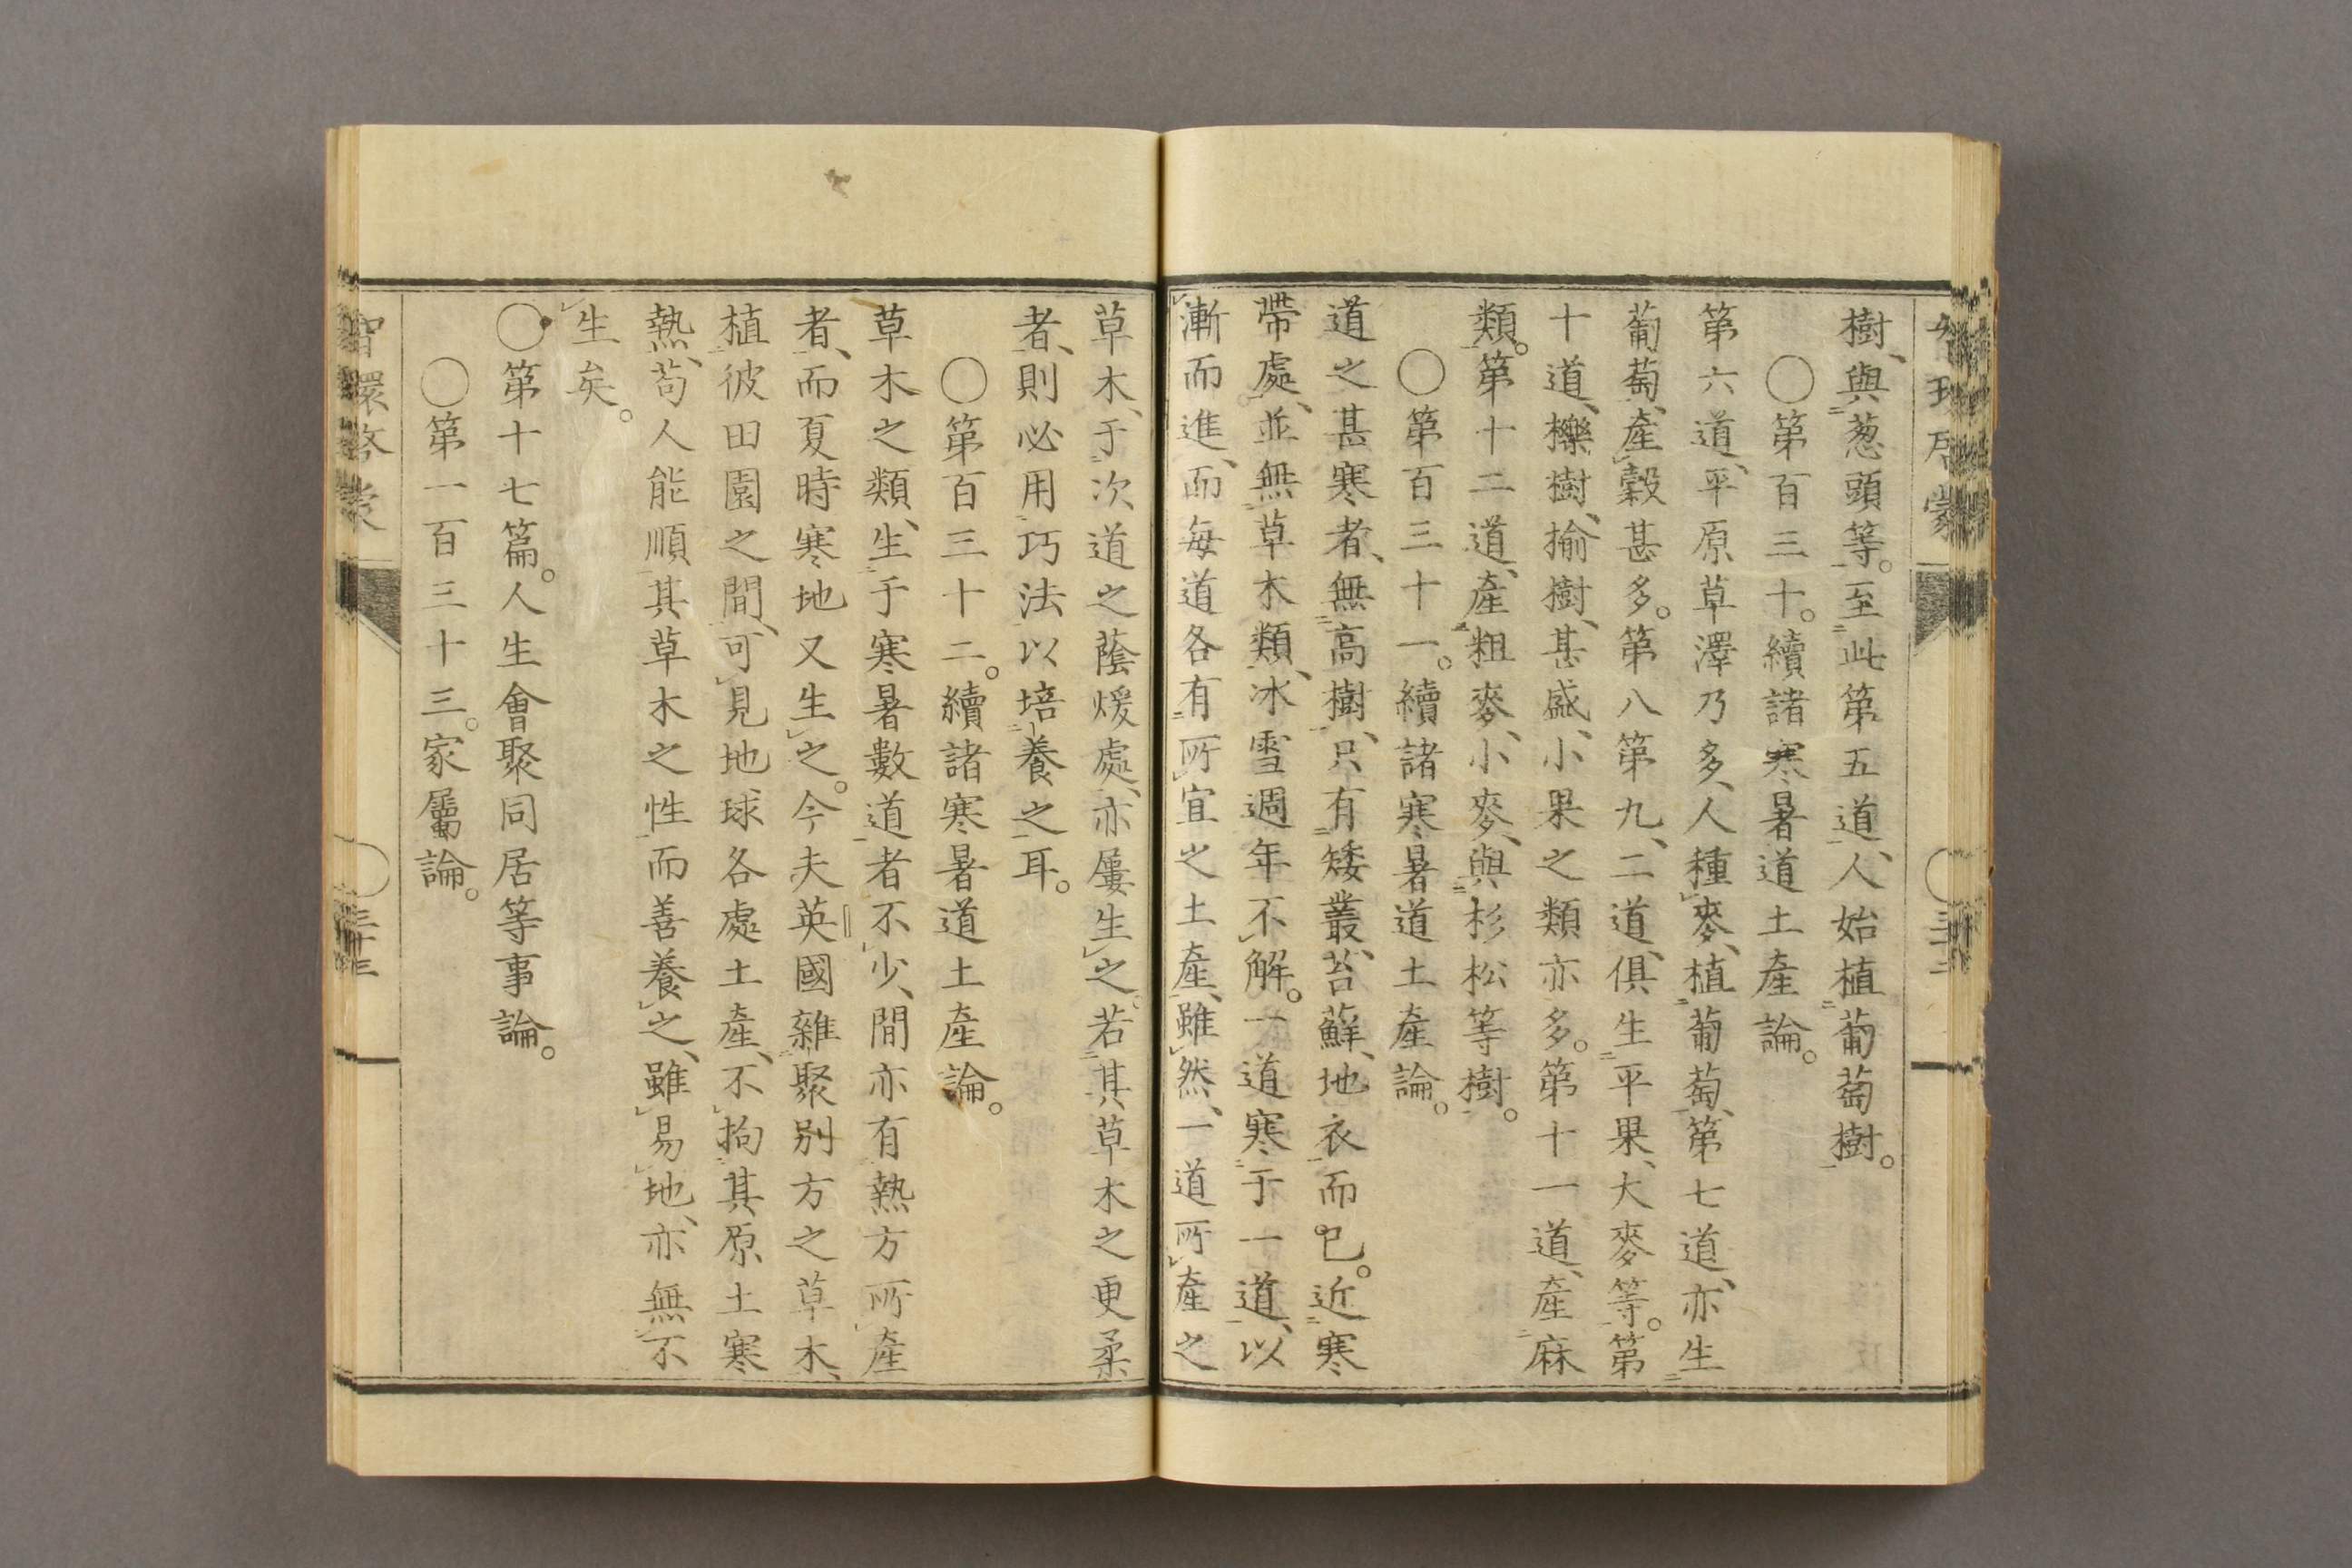 樹、與葱頭等。至此第五道、人始植葡萄樹。
〇第百三十。續諸寒暑道土產論。
第六道、平原草澤乃多、人種麥、植葡萄、第七道、亦生
葡萄、產穀甚多。第八第九、二道、俱生平果、大麥等。第
十道、櫟樹、揄樹、甚盛、小果之類亦多。第十一道、產麻
類。第十二道、產粗麥、小麥、與杉松等樹。
〇第百三十一。續諸寒暑道土產論。
道之甚寒者、無高樹、只有矮叢、苔蘚、地衣而已。近寒
帶處、並無草木類、冰雪週年不解。一道寒于一道、以
漸而進、而每道各有所宜之土產、雖然、一道所產之
草木、于次道之蔭煖處、亦屢生之。若其草木之更柔
者、則必用巧法以培養之耳。
〇第百三十二。續諸寒暑道土產論。
草木之類、生于寒暑數道者不少、間亦有熱方所產
者、而夏時寒地又生之。今夫英國雜聚別方之草木、
植彼田園之間、可見地球各處土產、不拘其原土寒
熱、苟人能順其草木之性而善養之、雖易地、亦無不
生矣。
〇第十七篇。人生會聚同居等事論。
〇第一百三十三。家屬論。
智環啓蒙
〇三十三